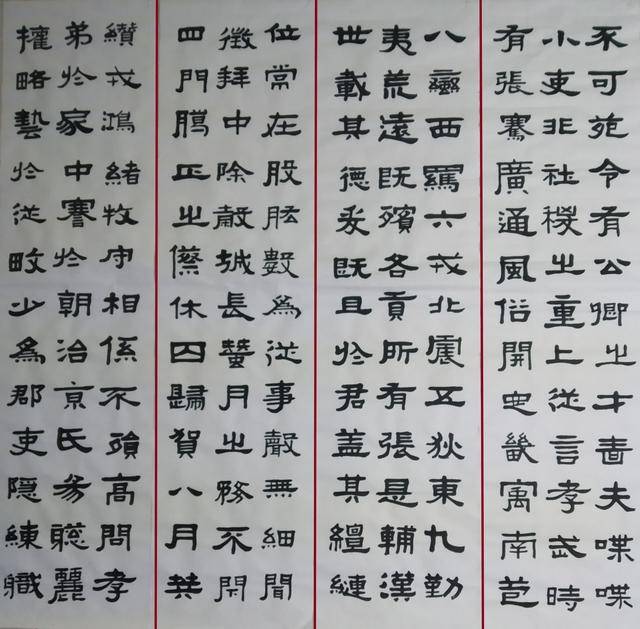 不可苑令有公卿之才嗇夫喋喋
小吏非社稷之重上從言孝武時
有張騫廣通風俗開定畿寓南苞
八蠻西羈六戎北震五狄東九勤
夷荒遠既殯各貢所有張是輔漢
世載其德爰既且於君蓋其繵縺
位常在股肱數為從事聲無細聞
徵拜中除穀城長蠶月之務不閉
四門臈正之僚休囚歸賀八月
纘戎鴻緒牧守相係不殞高問孝
弟於家中謇於朝治京氏易聰麗
權略藝於從畋少為郡吏隱練職